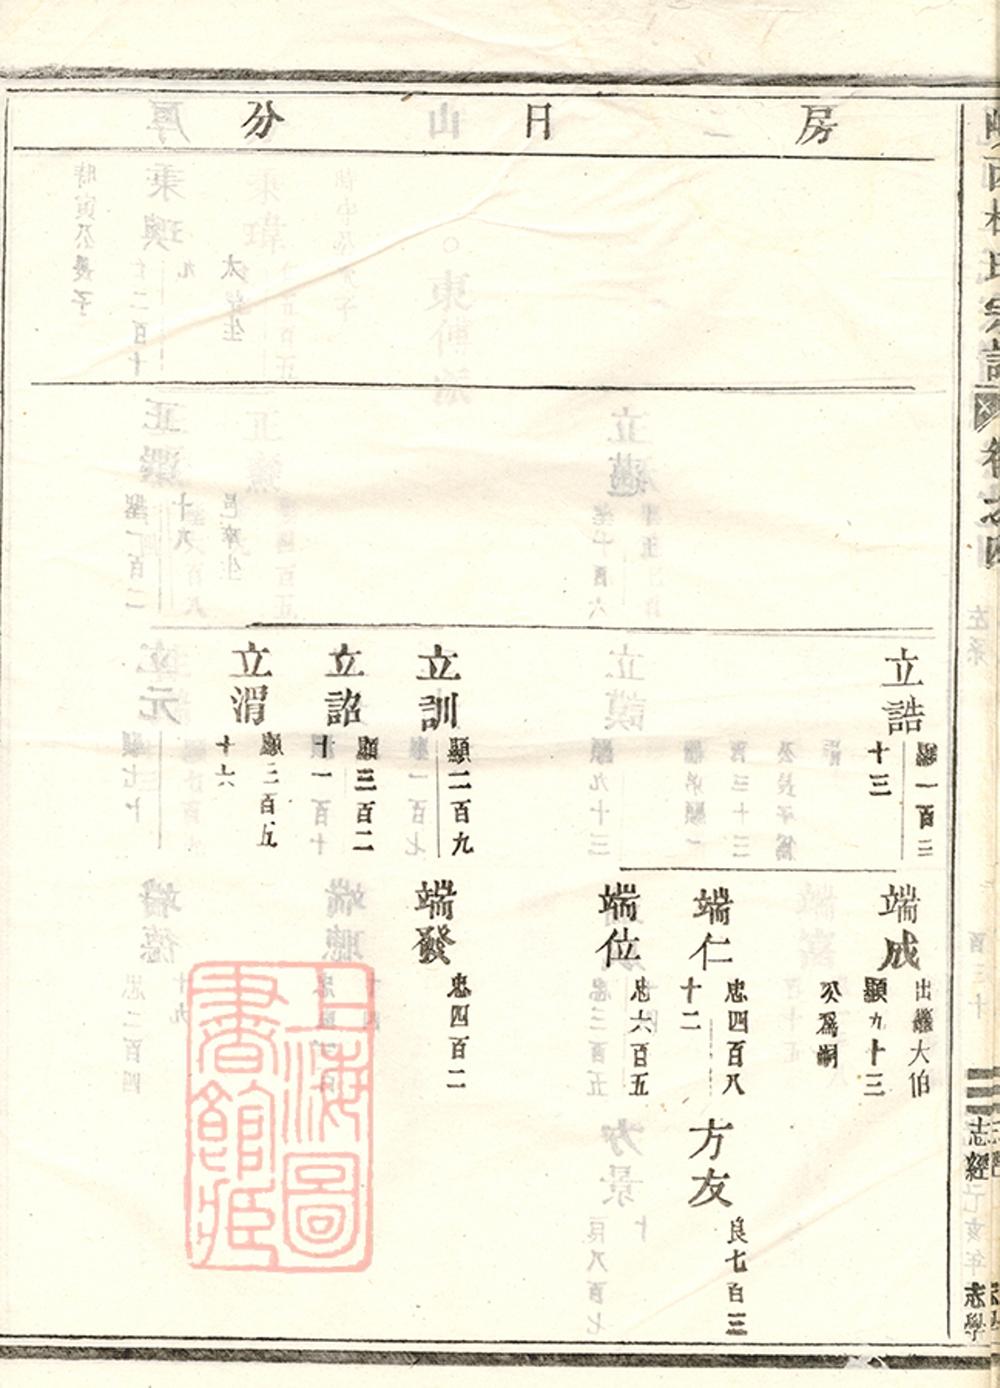 房 日 分
立誥
顯一百三
十三
立訓
顯二百九
立詔
顯三百二
十一
立渭
顯三百五
十六
端成
出繼大伯
顯九十三
公爲嗣
端仁
忠四百八
十二
端位
忠六百五
端發
忠四百二
方友
良七百三
卷之四
志經
志學
上海圖
書館藏